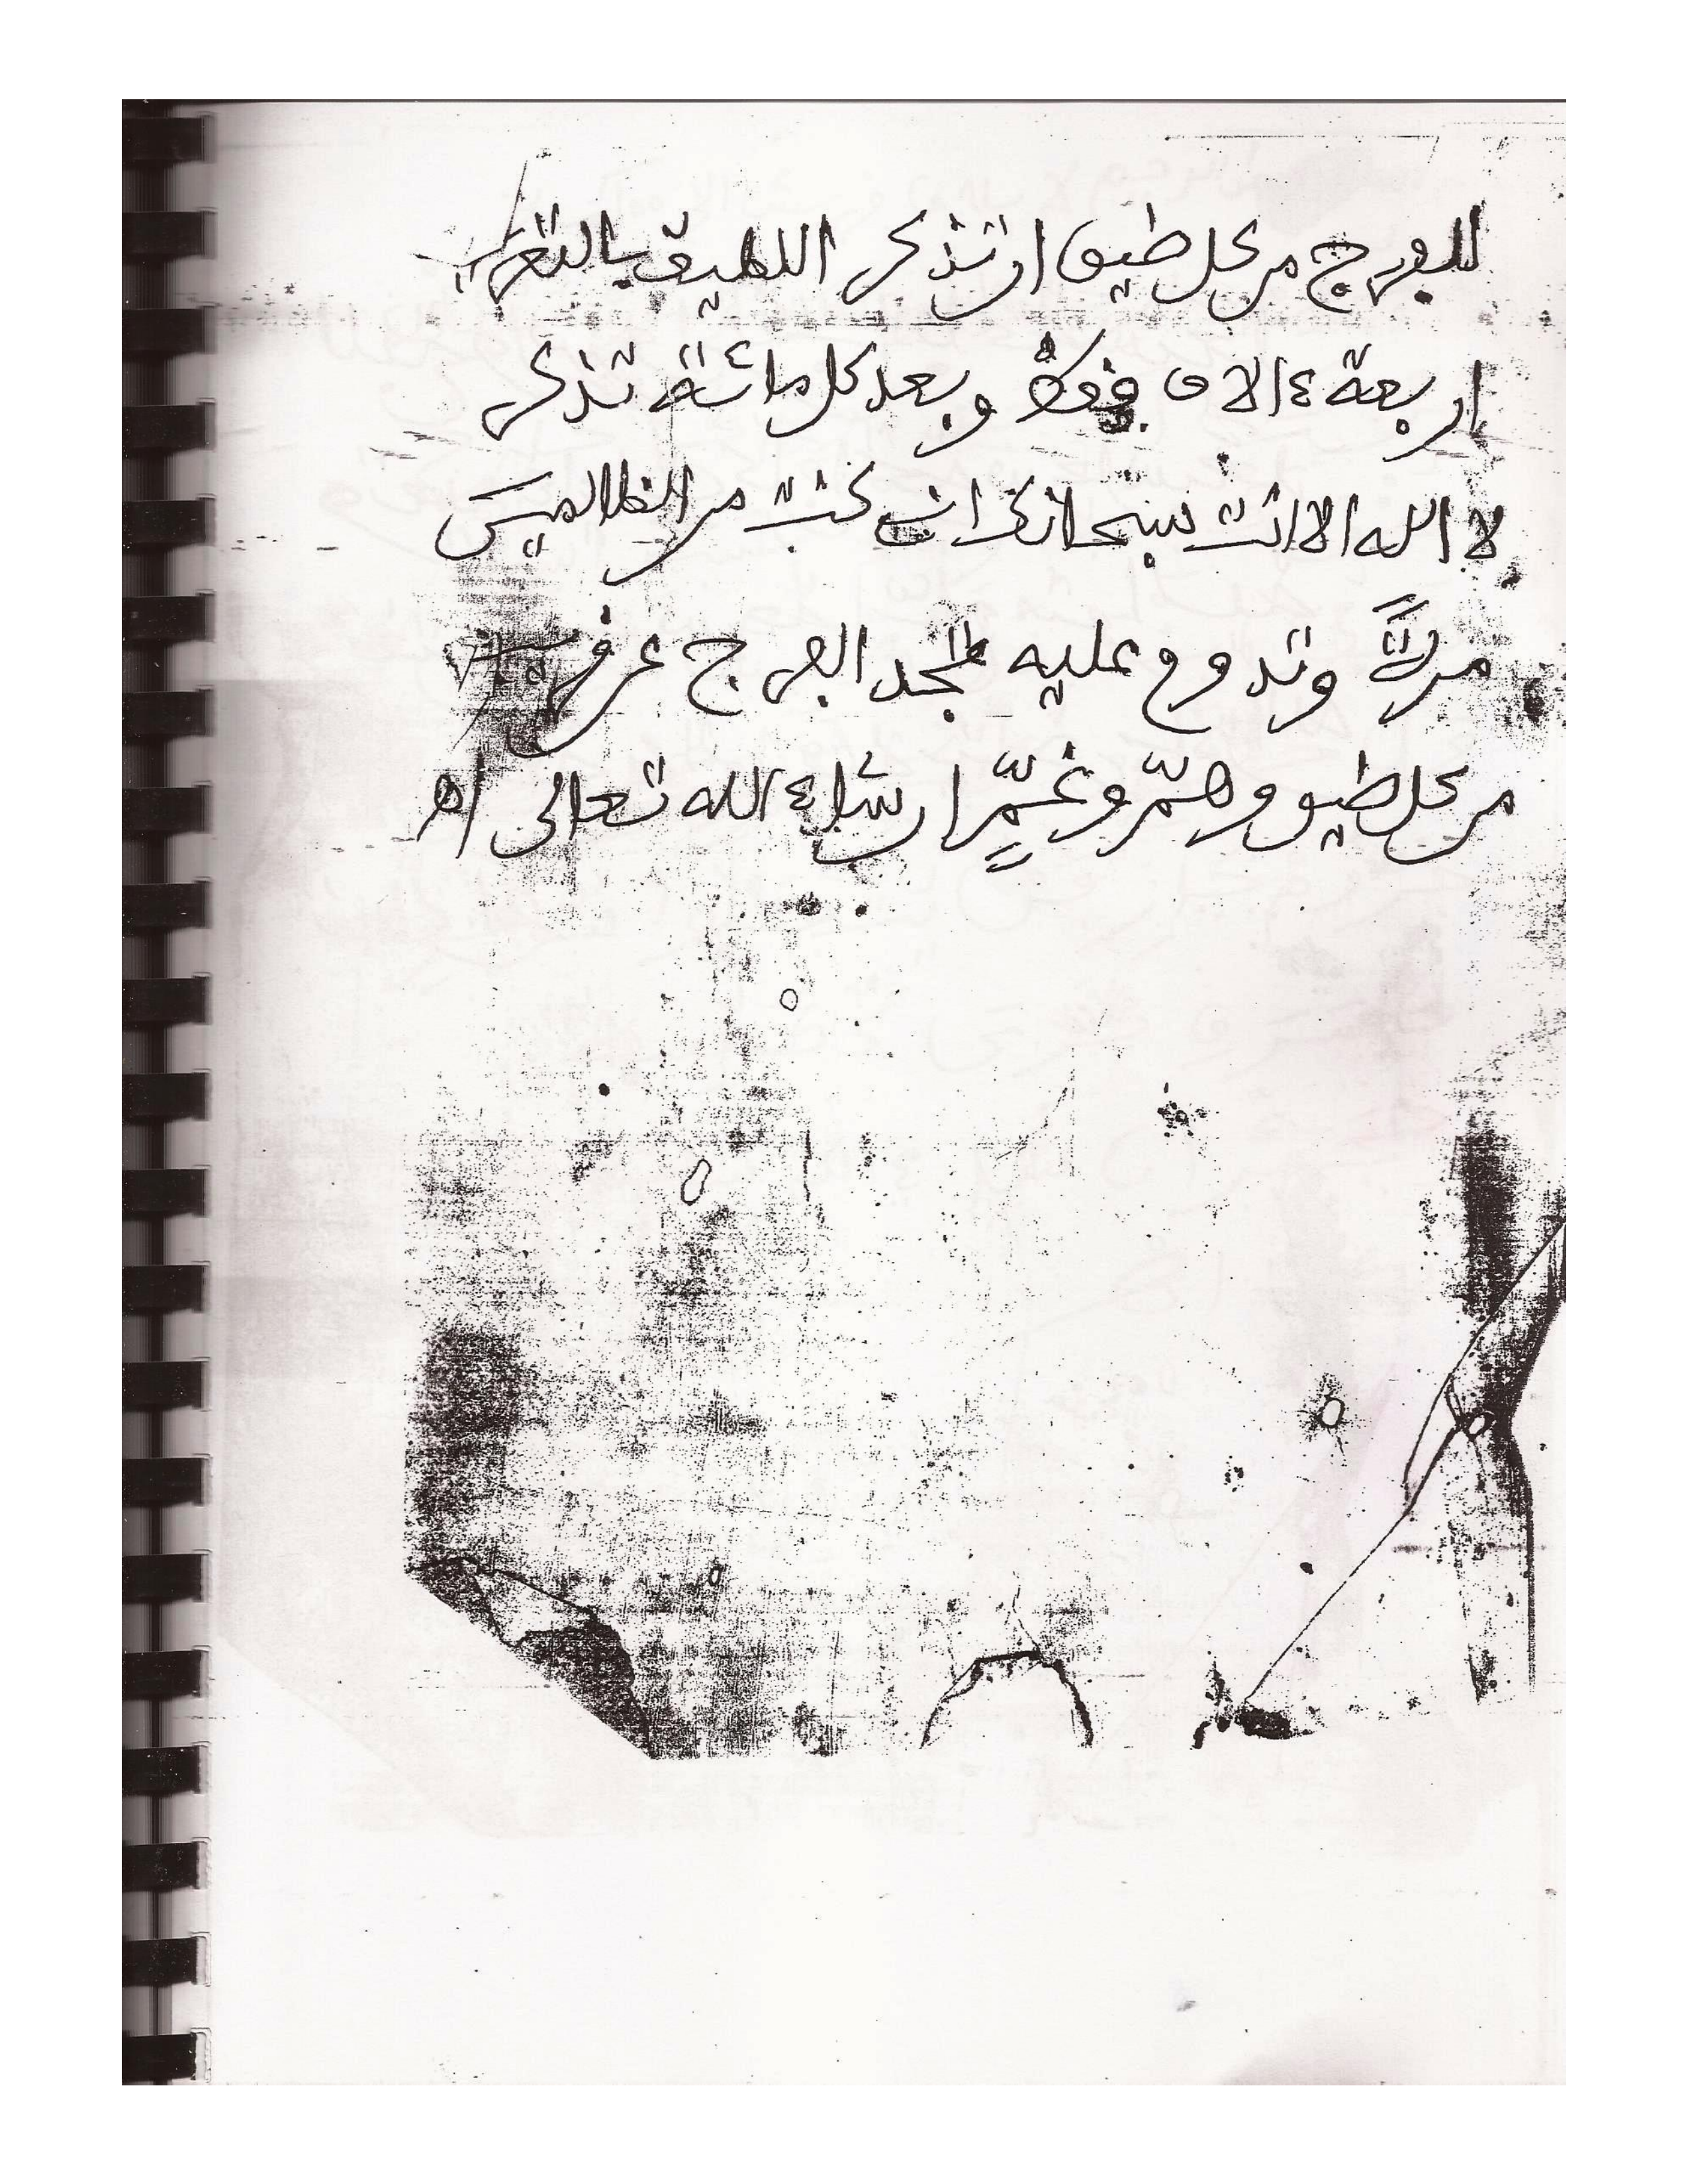 للفرج من كل ضيق ان تذكر اللطيف
اربعة ءالاف وبعد كل مائة تذكر
لا اله الا انت سبحانك انى كنت من الظالمين
مرة وتدوم عليه تجد الفرج عن قريب
من كل ضيق وهمّ وغمٍّ ان شاء الله تعالى اه